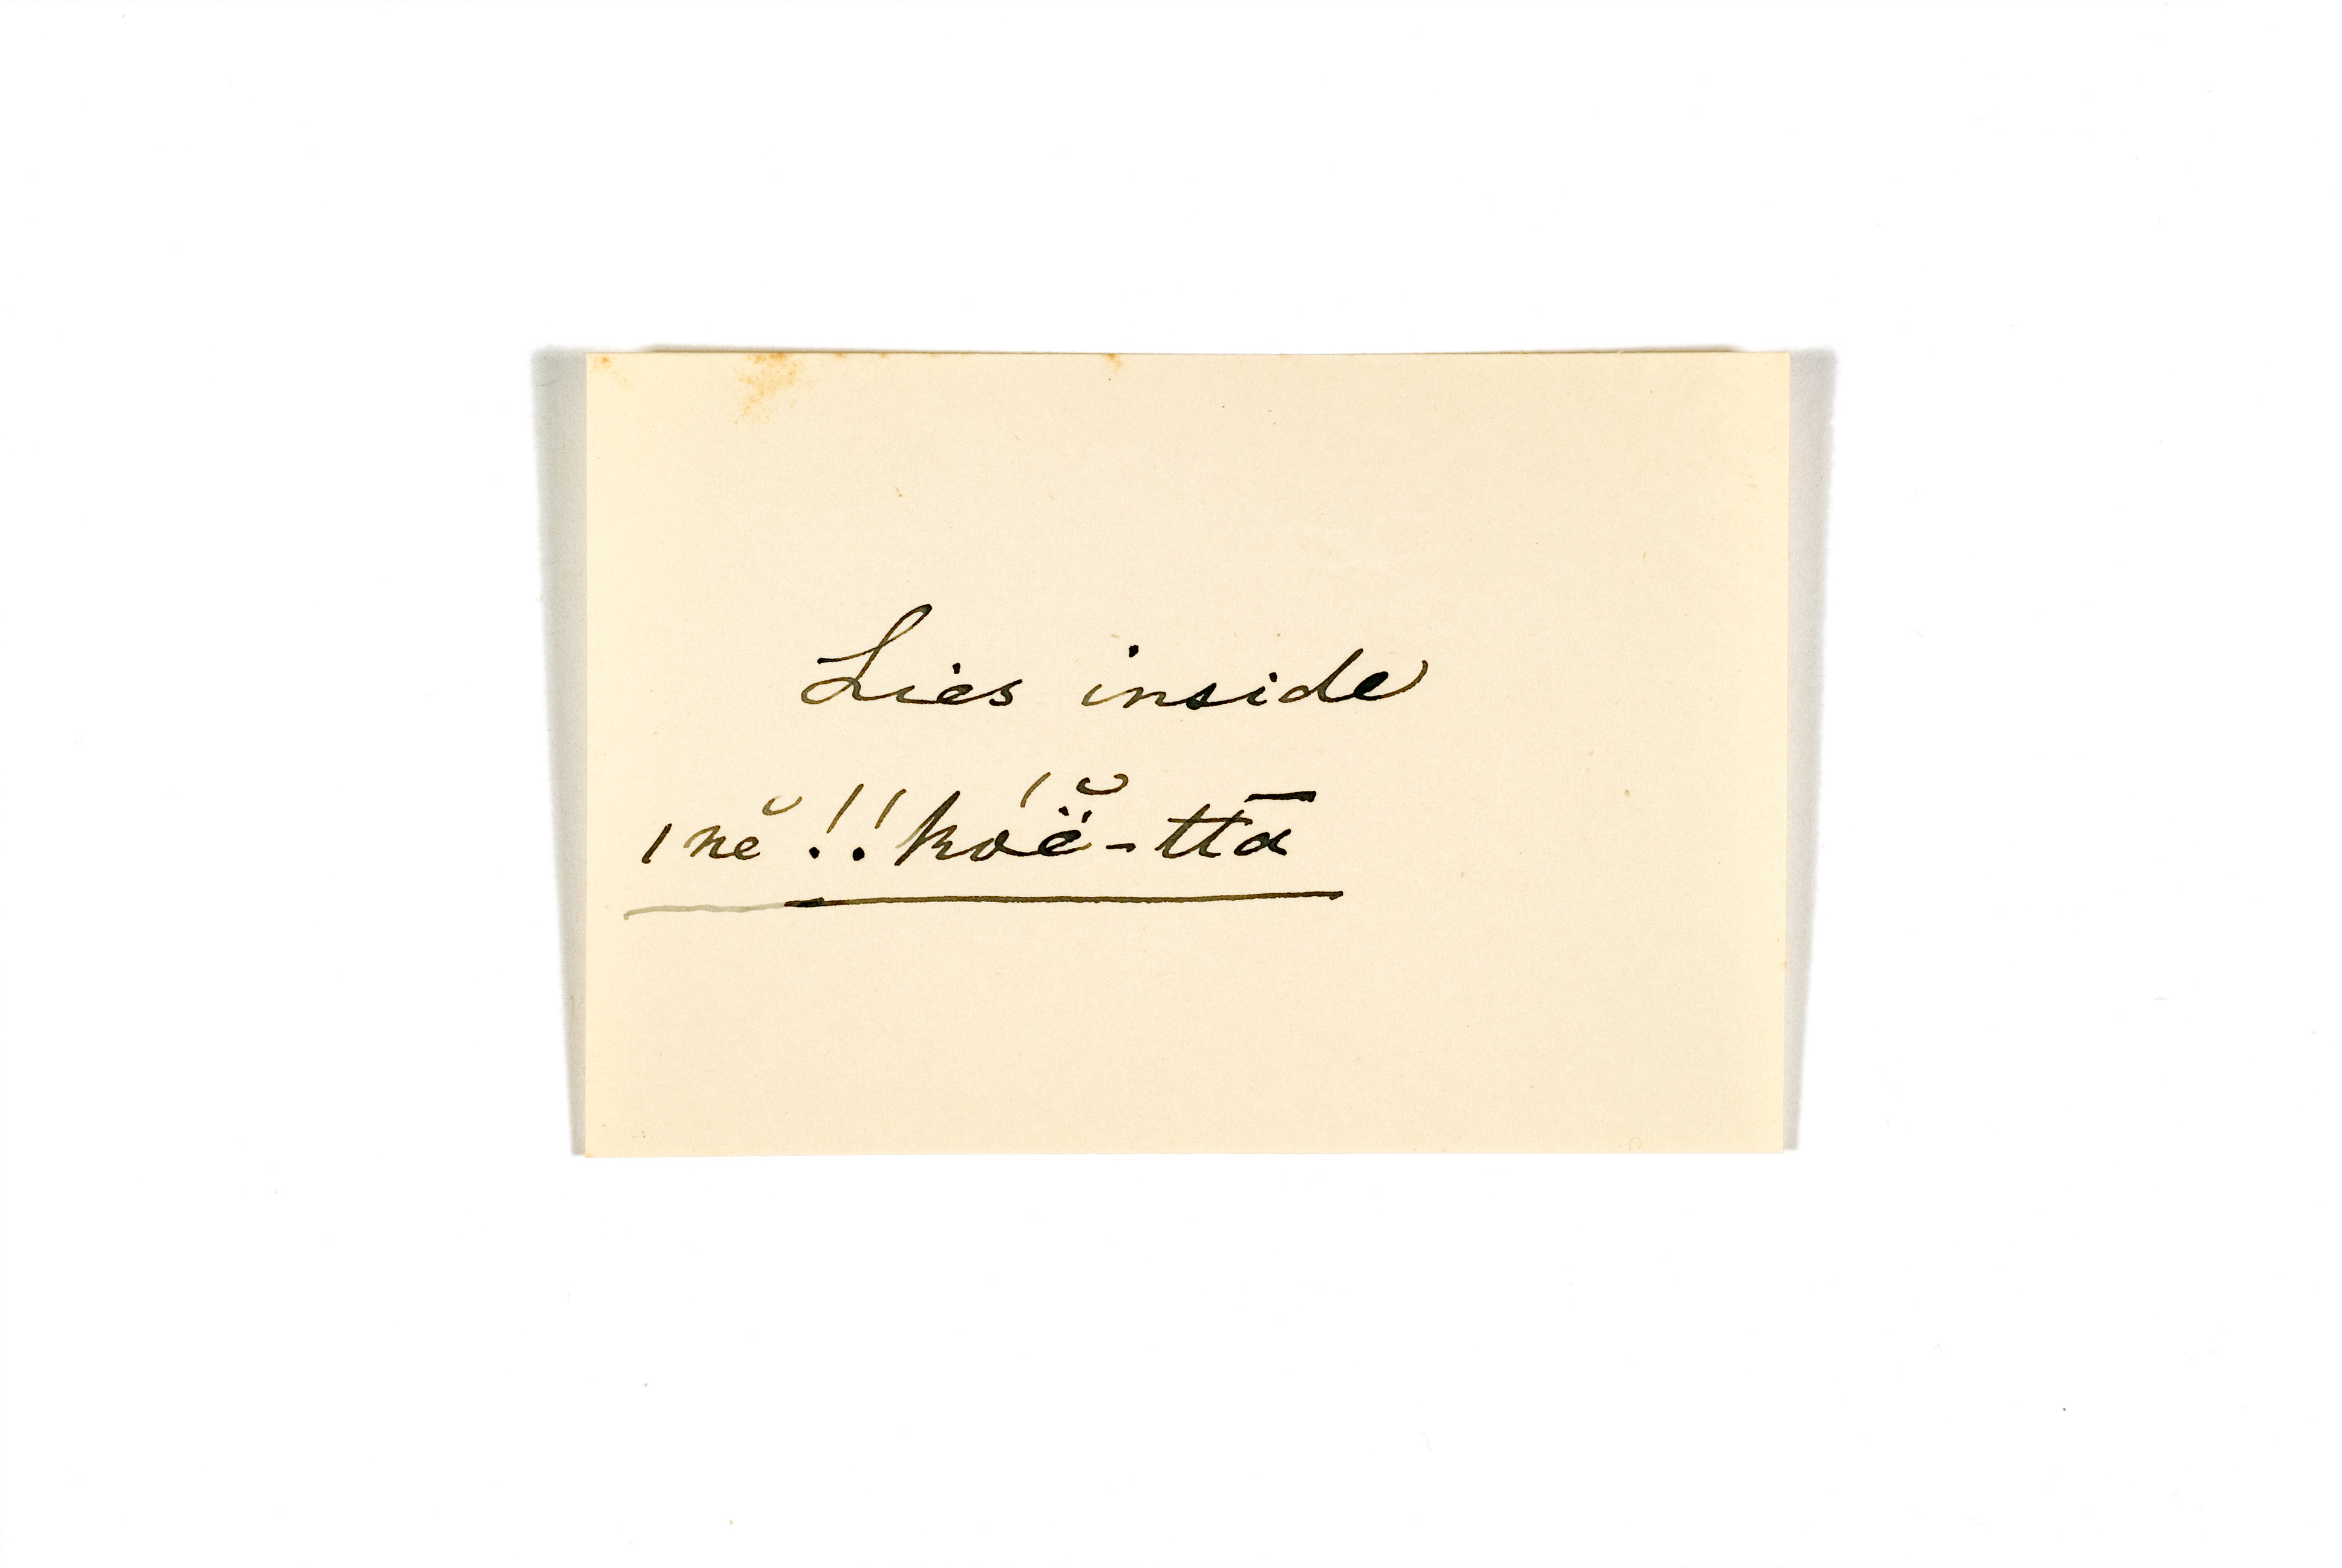 Lies inside
ǀnĕ !!kóë̆-ttā